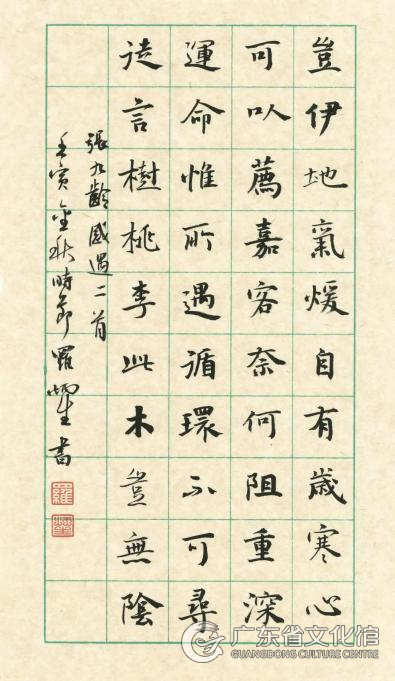 豈伊地氣煖自有歲寒心
可以薦嘉客奈何阻重深
運命惟所遇循環不可尋
徒言樹桃李此木豈無陰
張九齡感遇二首
壬寅金秋時節羅炳生書
广东省文化馆
GUANGDONG CULTURE CENTRE